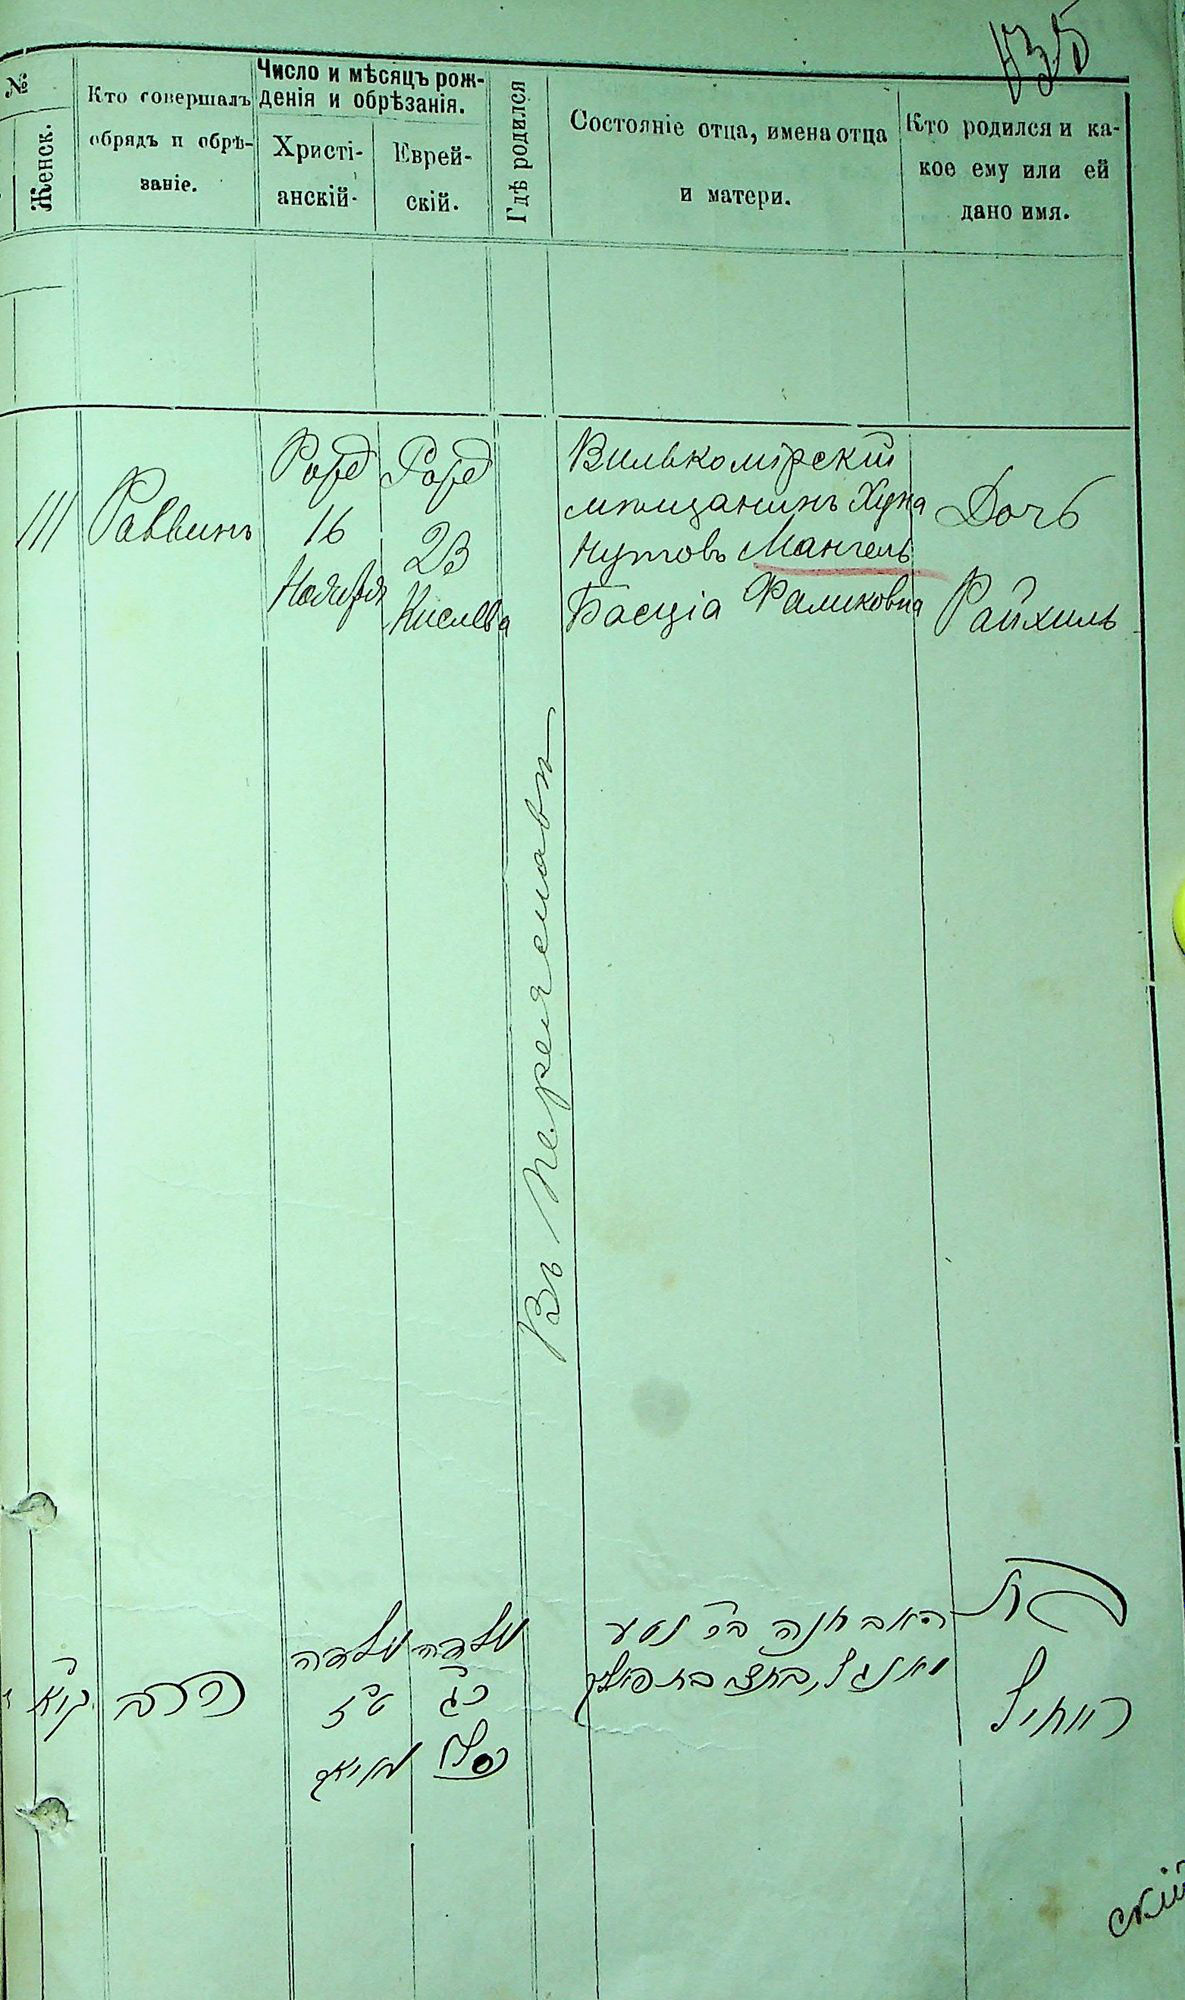 135
№
Женск.
Кто совершалъ
обрядъ и обрѣ-
заніе.
Число и мѣсяцъ рож-
денія и обрѣзанія.
Христі-
анскій.
Еврей-
скій.
Гдѣ родился
Состояніе отца, имена отца
и матери.
Кто родился и ка-
кое ему или ей
дано имя.
111
Раввинъ
Рожд
16
Ноября
Рожд
23
Кислева
Въ Переяславѣ
Вилькомірскій
мѣщанинъ Хуна
Нутовъ Мангель
Басціа Фаликовна
Дочь
Райхиль
קי"א
הרב
נולדה
ט"ז
נולדה
כ"ג
כסלו
האב חנה בר נטע
מאנגל,
בת
רייחיל
скій